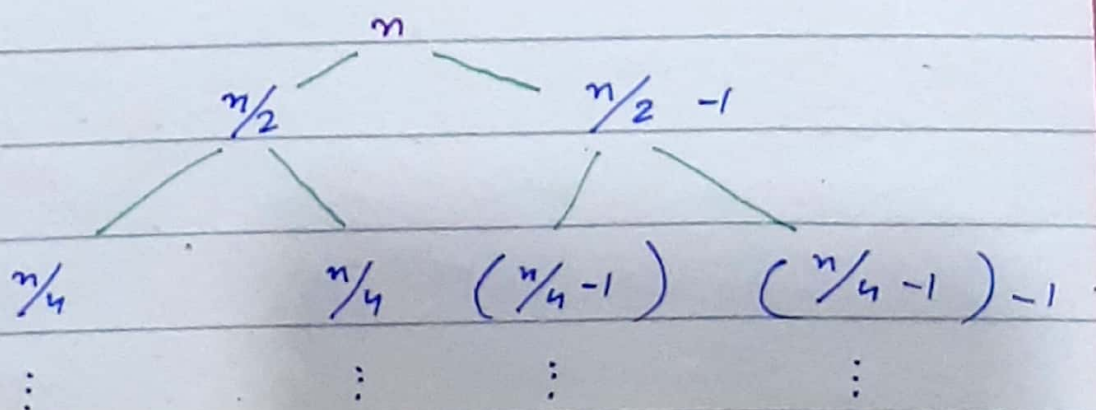 n
n/2 n/2 -1
n/4 n/4 (n/4 -1) (n/4 -1) -1
⋮ ⋮ ⋮ ⋮